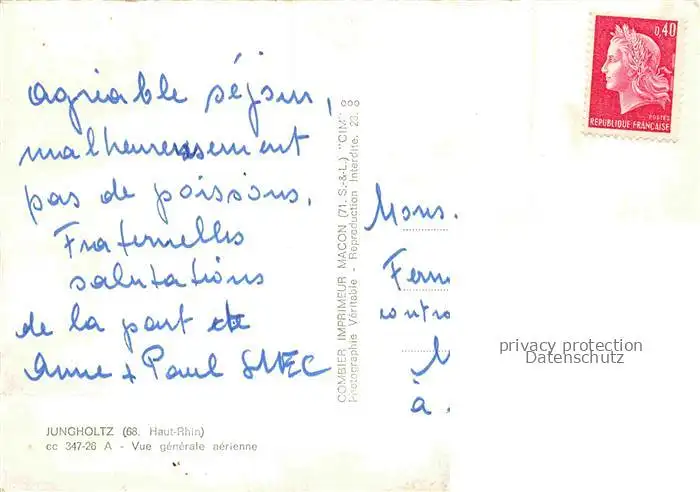 agréable séjour,
malheureusement
pas de poissons.
Fraternelles
salutations
de la part de
Anne + Paul
JUNGHOLTZ (68. Haut-Rhin)
cc 347-26 A - Vue générale aérienne
COMBIER IMPRIMEUR MACON (71. S.-&-L.) "CIM"
Photographie Véritable - Reproduction Interdite.
0,40
POSTES
REPUBLIQUE FRANCAISE
Mons.
à
privacy protection
Datenschutz